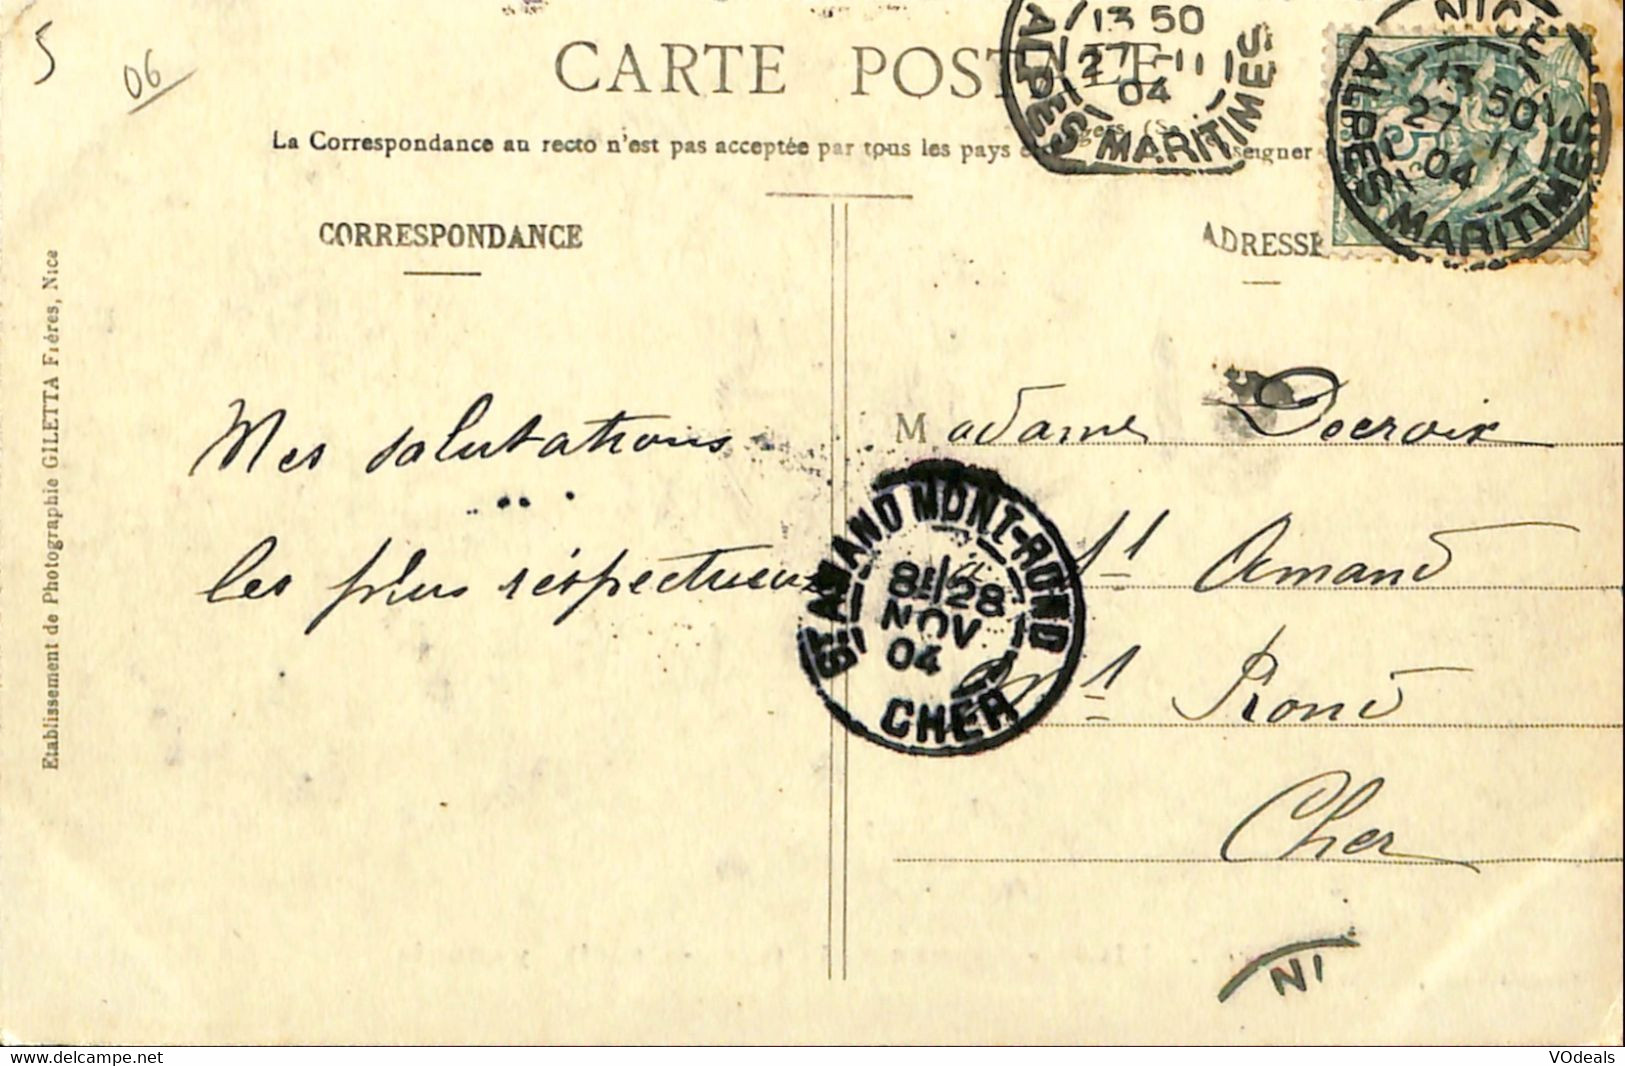 5
06
CARTE POSTALE
La Correspondance au recto n'est pas acceptée par tous les pays
seigner
13 50
27 - 11
04
ALPES MARITIMES
NICE
13 50
27 11
04
ALPES MARITIMES
5
CORRESPONDANCE
ADRESSE
Mes salutations
les plus respectueuses
Madame Decroix
St Amand
Mt Rond
Cher
ST AMAND MONT-ROND
8E/28
NOV
04
CHER
NI
Etablissement de Photographie GILETTA Frères, Nice
Image size: 1625x1047px - www.delcampe.net
VOdeals